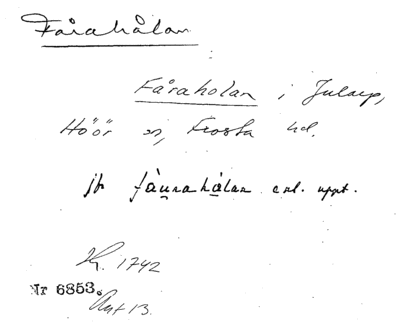 Fårahålan
Fåraholan i Jularp,
Höör sn, Frosta hd.
jb fàu̲rahà̲lan enl. uppt.
K. 1742
Nr 6853.
Akt 13.